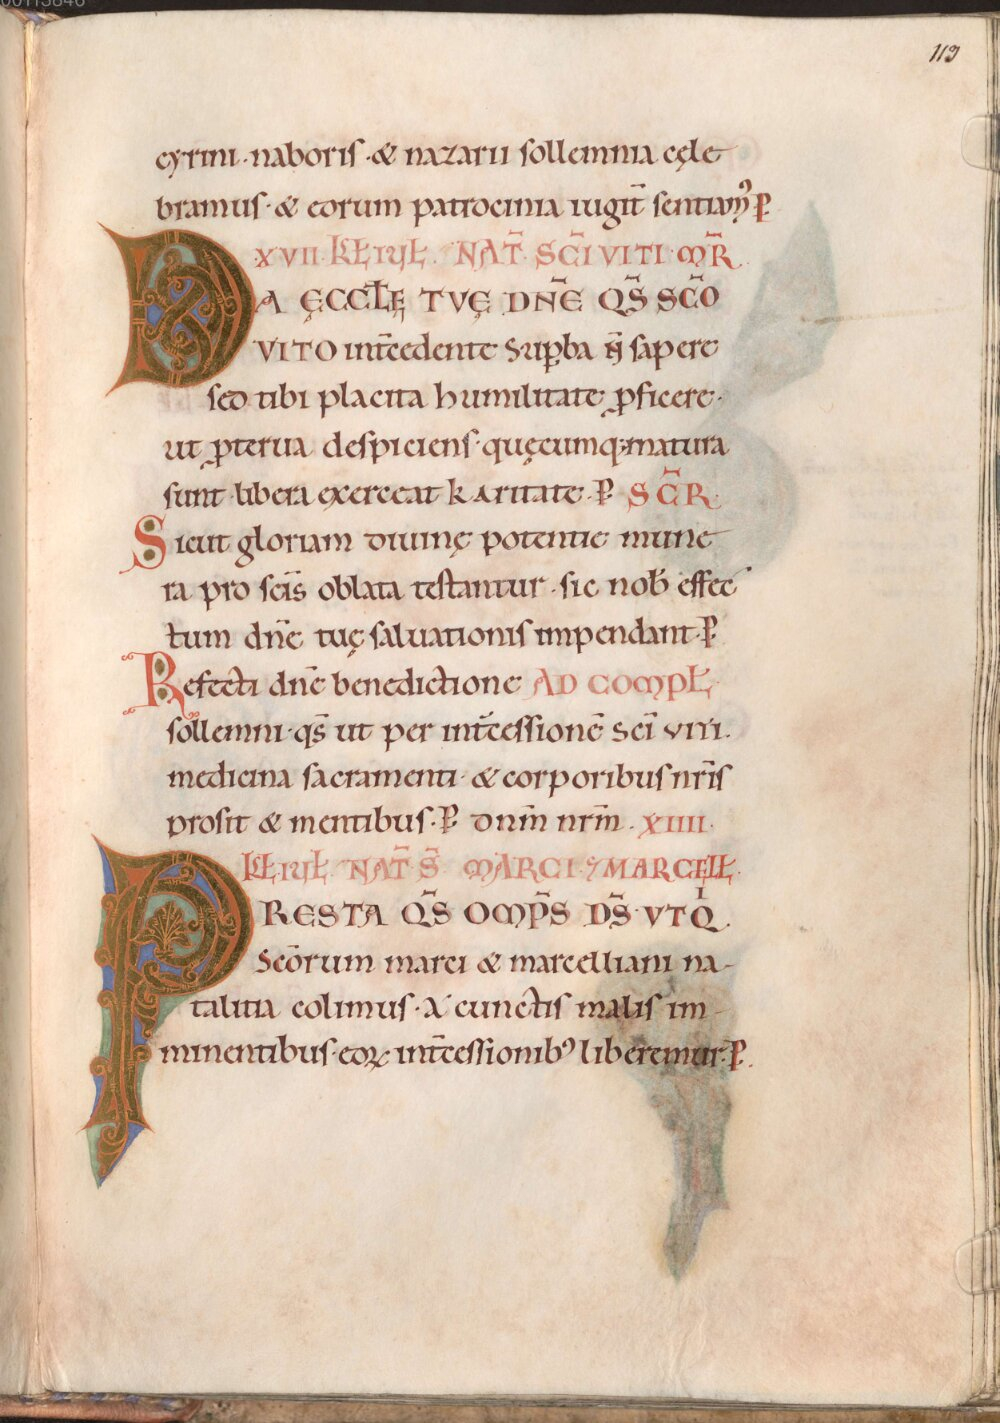 113
cyrini · naboris · & nazarii sollemnia cęle
bramus · & eorum patrocinia iugit̄ sentiamꝰ P̄
XVII · KŁ IUŁ · NAT̄ SC̄I VITI · MR̄
DA ĘCCŁĘ TVĘ DN̄E QS̄ SC̄O
VITO int̄cedente Sup̱ba n̄ sapere
sed tibi placita humilitate ꝓficere ·
ut ꝓterua despiciens · quęcumq; matura
sunt · libera exerceat karitate · P̄ SCR̄
Sicut gloriam diuinę potentie mune
ra pro scīs oblata testantur · sic nob̄ effec
tum dn̄e tuę saluationis impendant · P̄
Refecti dn̄e benedictione AD COMPŁ
sollemni · qs̄ ut per int̄cessionē Sc̄i VITI ·
medicina sacramenti · & corporibus nr̄is
prosit & mentibus · P̄ dnm̄ nrm̄ · XIIII ·
KŁ IUŁ NAT̄ S̄ MARCI · ⁊ MARCEŁŁ ·
PRESTA QS̄ OMPS̄ DS̄ · VT Qͥ ·
Scōrum marci & marcelliani na-
talitia colimus · A cunctis malis im-
minentibus · eoꝝ int̄cessionibꝰ liberemur · P̄ ·